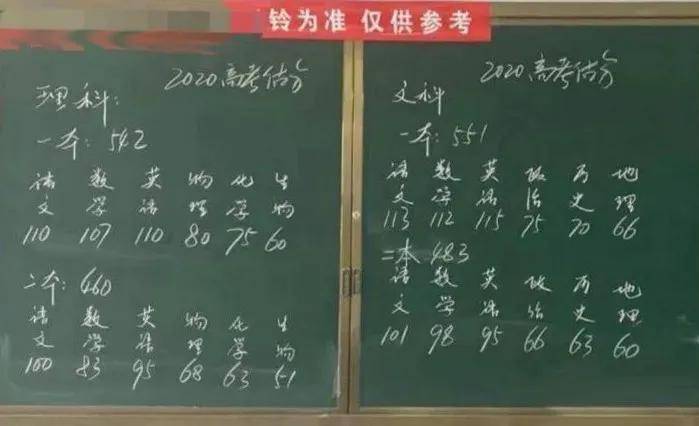 铃为准 仅供参考
2020高考估分
理科:
一本: 542
语文 数学 英语 物理 化学 生物
110 107 110 80 75 60
二本: 460
语文 数学 英语 物理 化学 生物
100 83 95 68 63 51
2020高考估分
文科
一本: 551
语文 数学 英语 政治 历史 地理
113 112 115 75 70 66
二本 483
语文 数学 英语 政治 历史 地理
101 98 95 66 63 60